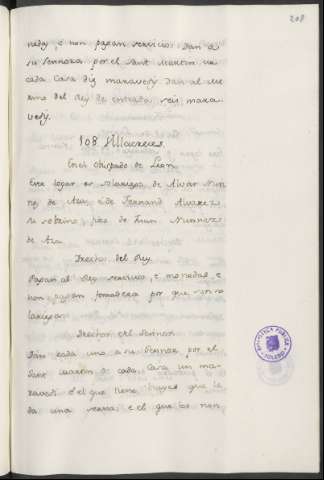 208
neda, e non pagan servicios. Dan a
su Sennora por el Sant Martin en
cada Casa diz maravery. Dan al Me-
rino del Rey de entrada seis mara-
very.
108 Villacreces.
En el obispado de Leon
Este logar es Solariego de Alvar Nun-
nez de Aza, e de Fernand Alvarez
su sobrino, fijo de Juan Nunnez
de Aza.
Drechos del Rey
Pagan al Rey servicios, e monedas, e
non pagan fonsadera por que son so-
lariegos.
Drechos del Sennor.
Dan cada uno a su Sennor por el
Sant Martin de cada Casa un ma-
ravedi e el que tiene bueyes que le
da una serna e el que los non
BIBLIOTECA PUBLICA
TOLEDO